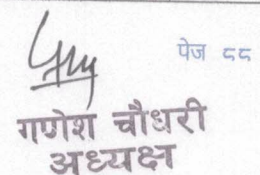 पेज ८८
गणेश चौधरी
अध्यक्ष